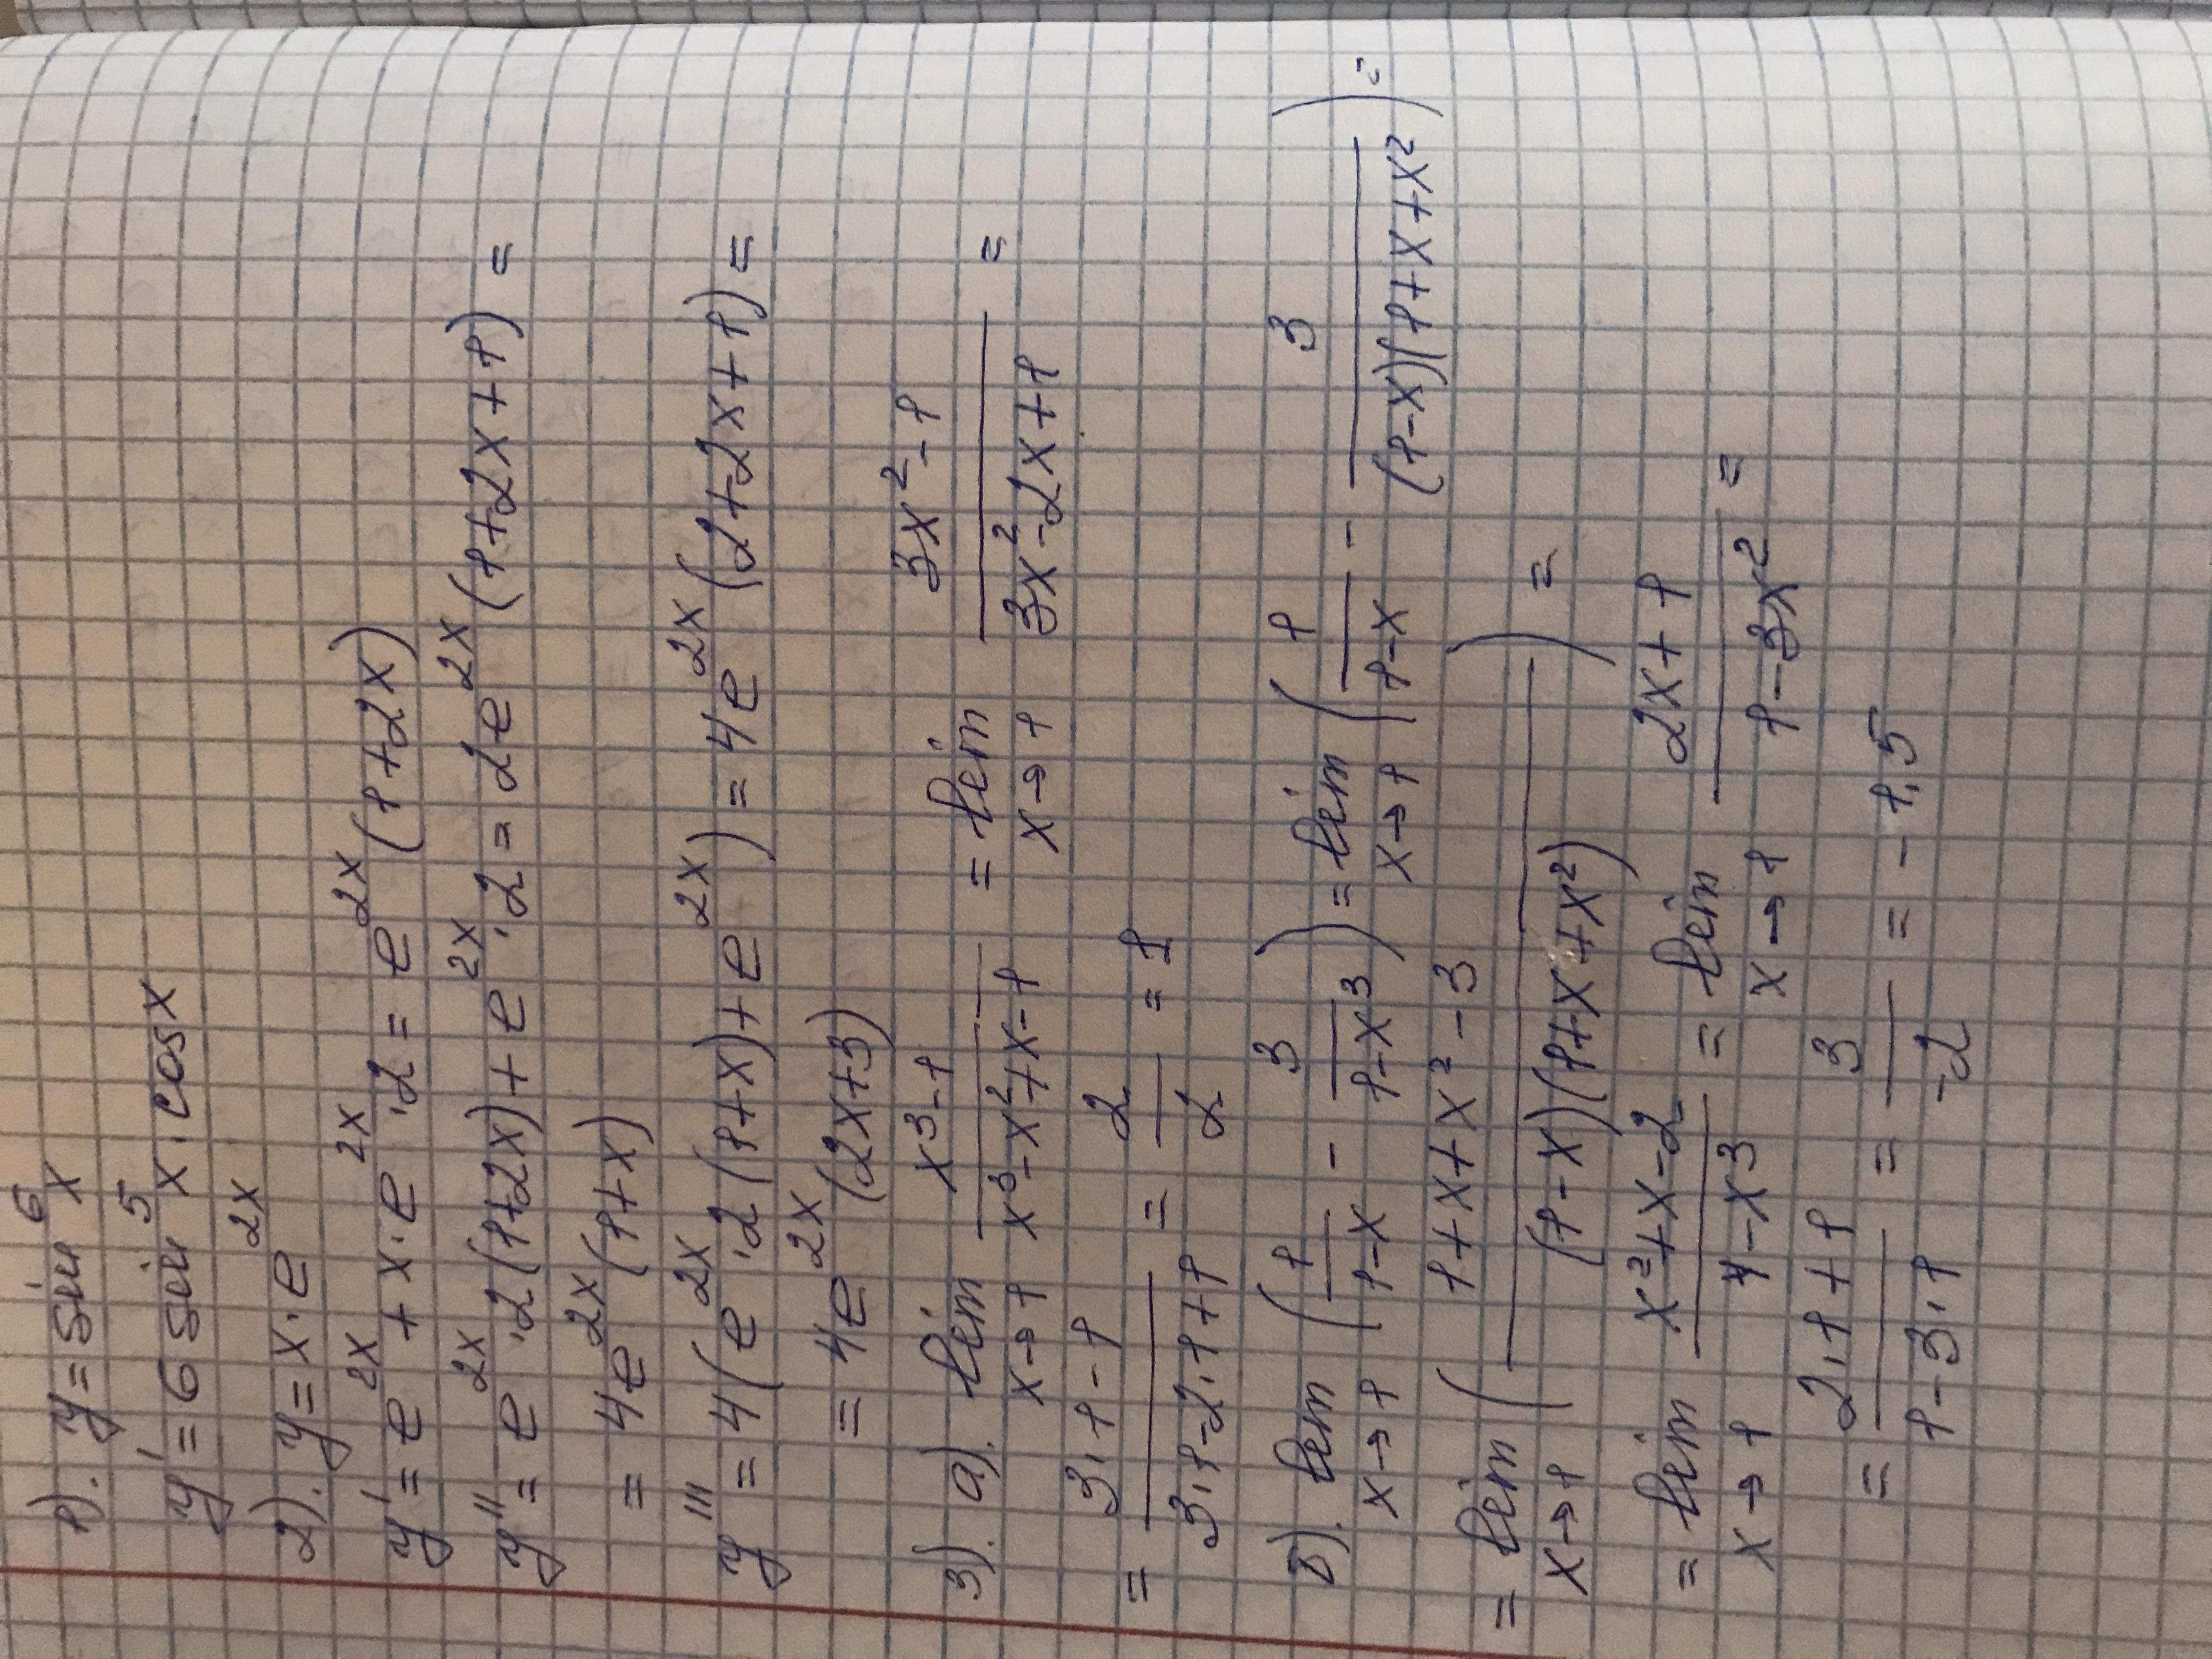 1). y = sin⁶ x
y' = 6 sin⁵ x · cos x
2). y = x · e^2x
y' = e^2x + x · e^2x · 2 = e^2x (1+2x)
y'' = e^2x · 2 (1+2x) + e^2x · 2 = 2e^2x (1+2x+1) =
= 4e^2x (1+x)
y''' = 4(e^2x · 2 (1+x) + e^2x) = 4e^2x (2+2x+1) =
= 4e^2x (2x+3)
3). a). lim x→1 (x³-1)/(x³-x²+x-1) = lim x→1 (3x²-1)/(3x²-2x+1) =
= (3·1-1)/(3·1-2·1+1) = 2/2 = 1
б). lim x→1 (1/(1-x) - 3/(1-x³)) = lim x→1 (1/(1-x) - 3/((1-x)(1+x+x²)) =
= lim x→1 ((1+x+x²-3)/((1-x)(1+x+x²))) =
= lim x→1 (x²+x-2)/(1-x³) = lim x→1 (2x+1)/(1-3x²) =
= (2·1+1)/(1-3·1) = 3/-2 = -1,5